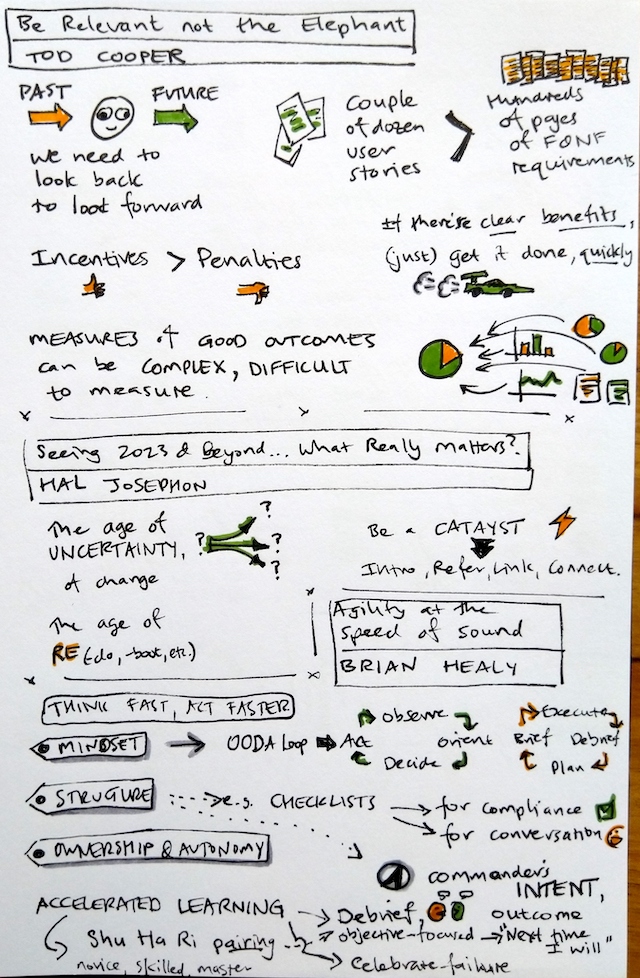 Be Relevant not the Elephant
TOD COOPER
PAST
FUTURE
we need to
look back
to look forward
Couple
of dozen
user
stories
>
Hundreds
of pages
of F&NF
requirements
Incentives > Penalties
If there's clear benefits,
(just) get it done, quickly
MEASURES of GOOD OUTCOMES
can be COMPLEX, DIFFICULT
to measure.
Seeing 2023 & Beyond... What Really Matters?
HAL JOSEPHON
The age of
UNCERTAINTY,
of change
? ? ? ?
The age of
RE (do, -boot, etc.)
Be a CATAYST
Intro, Refer, Link, Connect.
Agility at the
Speed of Sound
BRIAN HEALY
THINK FAST, ACT FASTER
MINDSET
OODA Loop
Observe
Orient
Decide
Act
Execute
Debrief
Plan
Brief
STRUCTURE
e.g. CHECKLISTS
for compliance
for conversation
OWNERSHIP & AUTONOMY
commander's
INTENT,
outcome
ACCELERATED LEARNING
Debrief,
objective-focused
"Next time
I will"
Celebrate failure
Shu Ha Ri pairing
novice, skilled, master